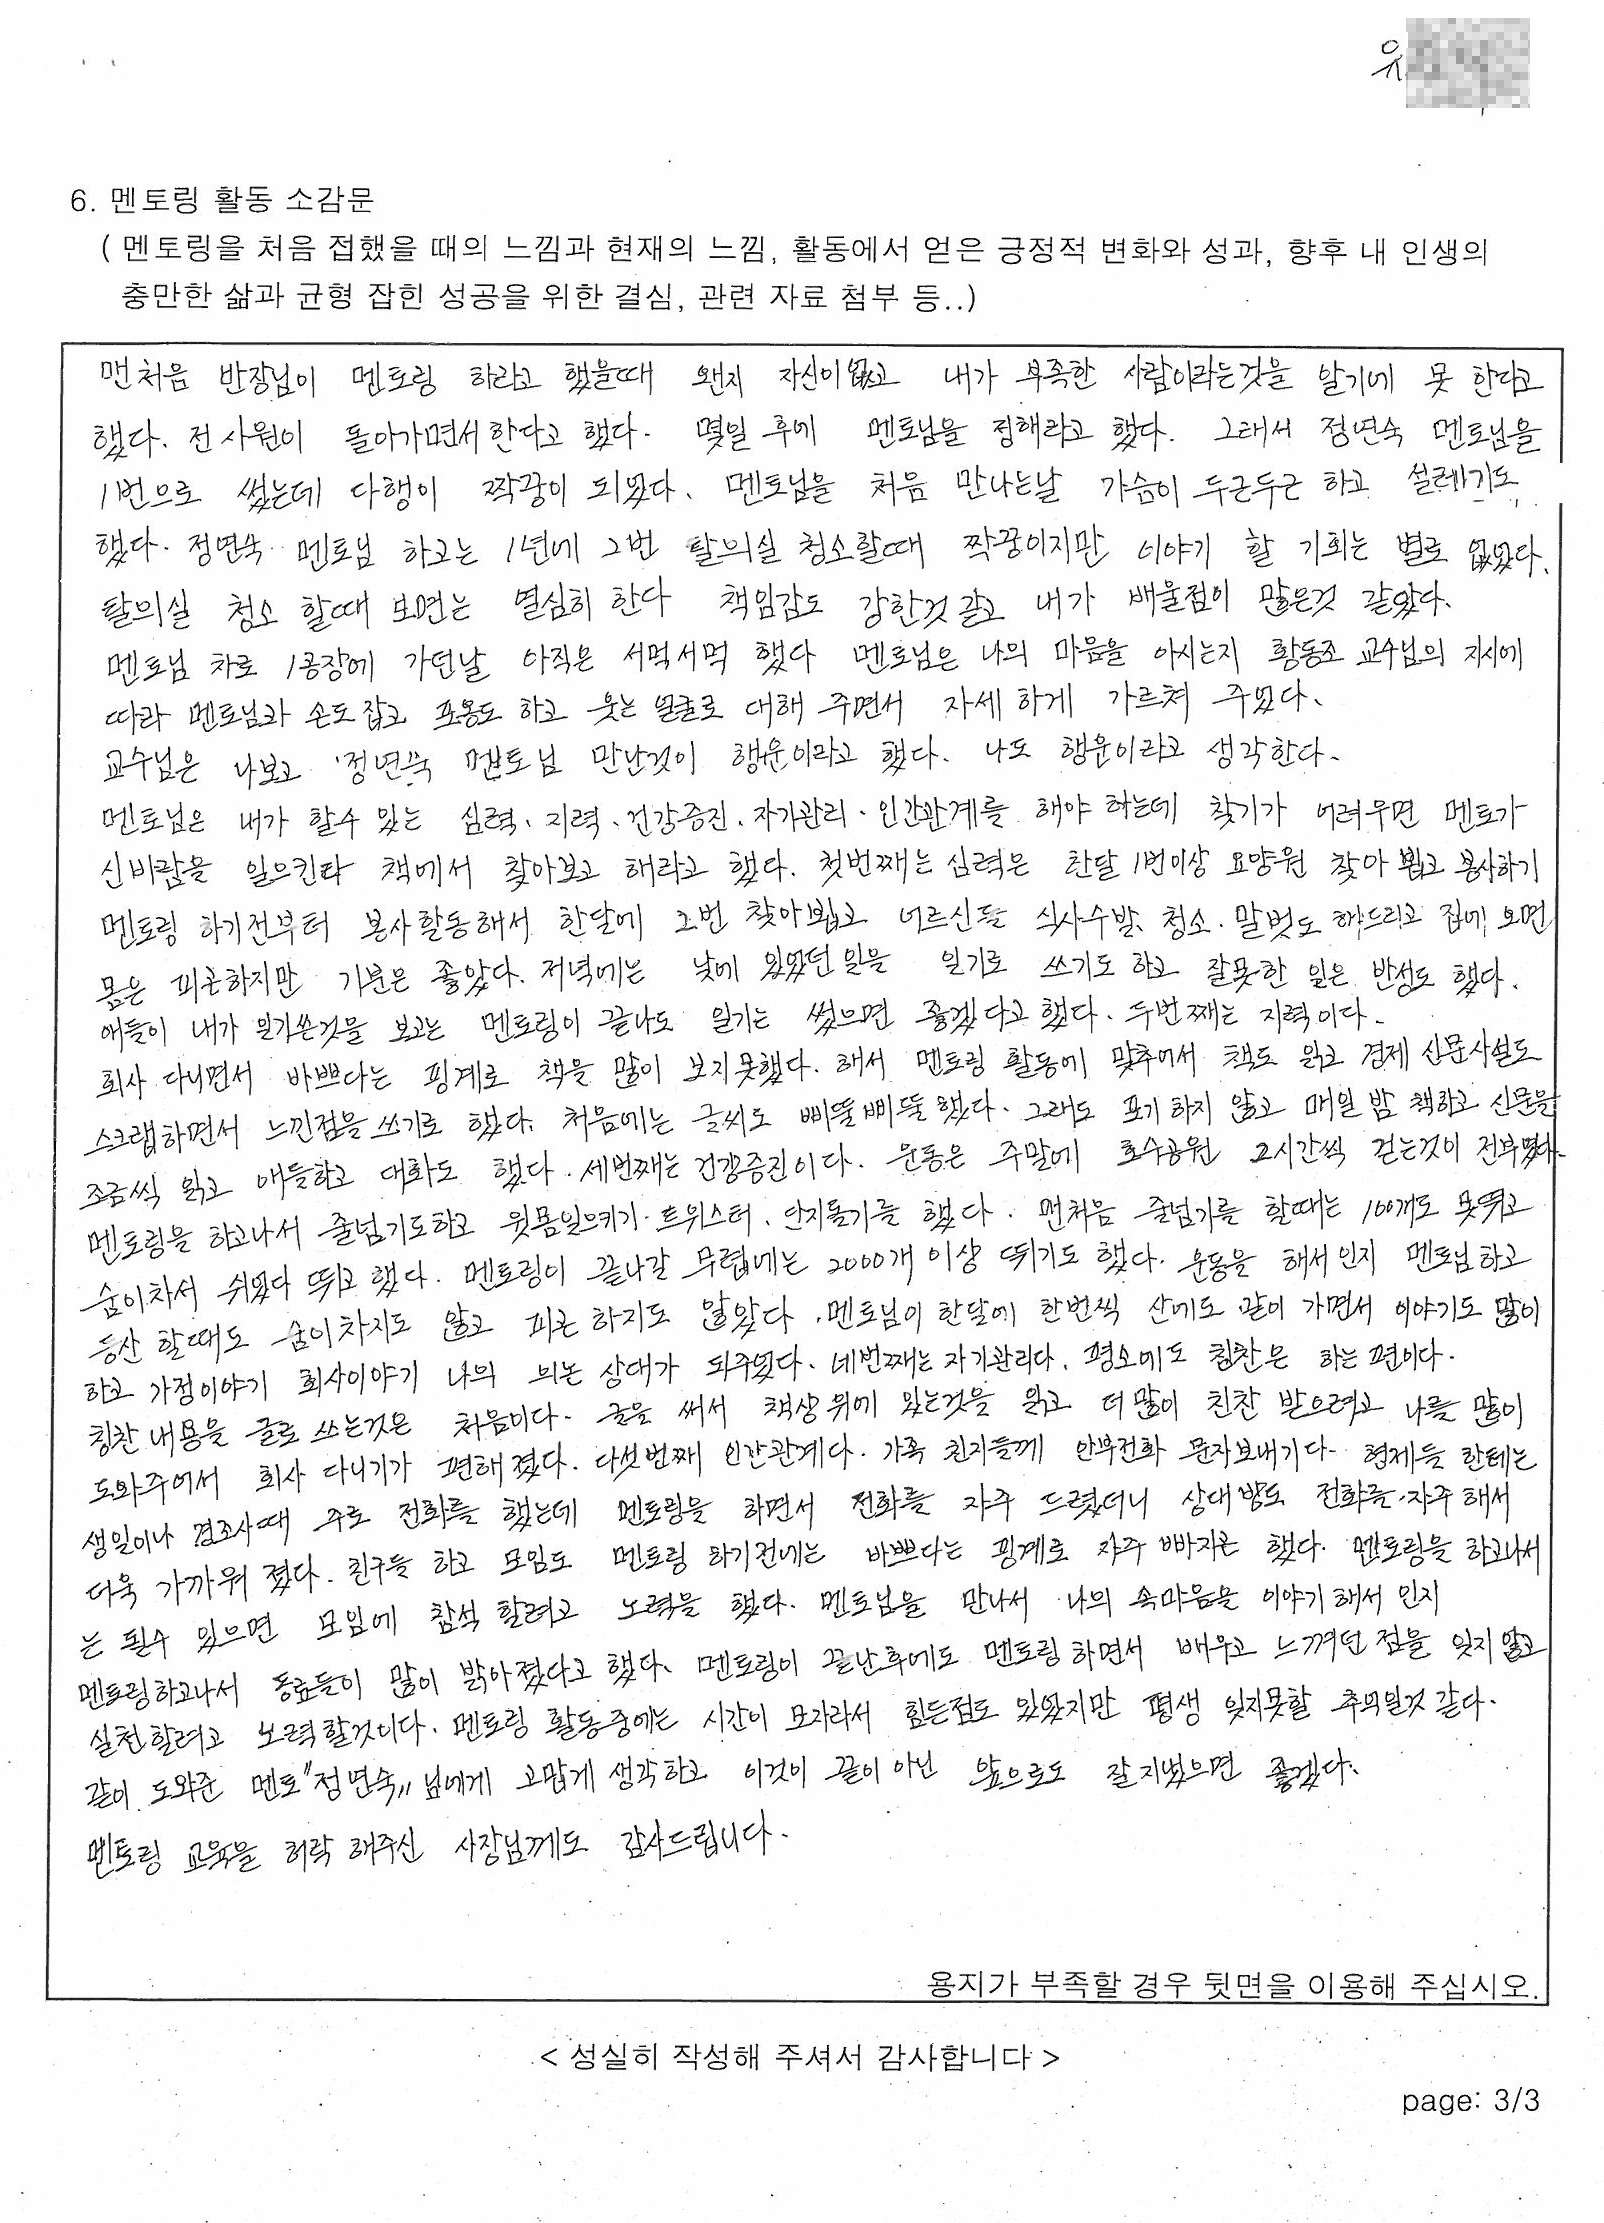 유
6. 멘토링 활동 소감문
( 멘토링을 처음 접했을 때의 느낌과 현재의 느낌, 활동에서 얻은 긍정적 변화와 성과, 향후 내 인생의
충만한 삶과 균형 잡힌 성공을 위한 결심, 관련 자료 첨부 등..)
맨처음 반장님이 멘토링 하라고 했을때 왠지 자신이 없고 내가 부족한 사람이라는것을 알기에 못 한다고
했다. 전 사원이 돌아가면서한다고 했다. 몇일 후에 멘토님을 정해라고 했다. 그래서 정연숙 멘토님을
1번으로 썼는데 다행이 짝꿍이 되었다. 멘토님을 처음 만나는날 가슴이 두근두근 하고 설레기도
했다. 정연숙 멘토님 하고는 1년에 2번 탈의실 청소할때 짝꿍이지만 이야기 할 기회는 별로 없었다.
탈의실 청소 할때 보면는 열심히 한다 책임감도 강한것 같고 내가 배울점이 많은것 같았다.
멘토님 차로 1공장에 가던날 아직은 서먹서먹 했다 멘토님은 나의 마음을 아시는지 황동조 교수님의 지시에
따라 멘토님과 손도잡고 포옹도 하고 웃는 얼굴로 대해 주면서 자세하게 가르쳐 주었다.
교수님은 나보고 정연숙 멘토님 만난것이 행운이라고 했다. 나도 행운이라고 생각한다.
멘토님은 내가 할수 있는 심력. 지력. 건강증진. 자기관리. 인간관계를 해야 하는데 찾기가 어려우면 멘토가
신바람을 일으킨다 책에서 찾아보고 해라고 했다. 첫번째는 심력은 한달 1번이상 요양원 찾아 뵙고 봉사하기
멘토링 하기전부터 봉사활동해서 한달에 2번 찾아뵙고 어르신들 식사수발. 청소. 말벗도 해드리고 집에 오면
몸은 피곤하지만 기분은 좋았다. 저녁에는 낮에 있었던일을 일기로 쓰기도 하고 잘못한 일은 반성도 했다.
애들이 내가 일기쓴것을 보고는 멘토링이 끝나도 일기는 썼으면 좋겠다고 했다. 두번째는 지력이다.
회사 다니면서 바쁘다는 핑계로 책을 많이 보지못했다. 해서 멘토링 활동에 맞추어서 책도 읽고 경제 신문사설도
스크랩하면서 느낀점을 쓰기로 했다. 처음에는 글씨도 삐뚤삐뚤했다. 그래도 포기하지 않고 매일밤 책하고 신문을
조금씩 읽고 애들하고 대화도 했다. 세번째는 건강증진이다. 운동은 주말에 호수공원 2시간씩 걷는것이 전부였다.
멘토링을 하고나서 줄넘기도하고 윗몸일으키기. 트위스터. 단지돌기를 했다. 맨처음 줄넘기를 할때는 100개도 못뛰고
숨이차서 쉬었다 뛰고 했다. 멘토링이 끝나갈 무렵에는 2000개 이상 뛰기도 했다. 운동을 해서인지 멘토님하고
등산 할때도 숨이차지도 않고 피곤하지도 않았다. 멘토님이 한달에 한번씩 산에도 같이 가면서 이야기도 많이
하고 가정이야기 회사이야기 나의 의논 상대가 되주었다. 네번째는 자기관리다. 평소에도 칭찬은 하는 편이다.
칭찬 내용을 글로 쓰는것은 처음이다. 글을 써서 책상위에 있는것을 읽고 더 많이 친찬 받으려고 나를 많이
도와주어서 회사 다니기가 편해졌다. 다섯번째 인간관계다. 가족 친지들께 안부전화 문자보내기다. 형제들 한테는
생일이나 경조사때 주로 전화를 했는데 멘토링을 하면서 전화를 자주 드렸더니 상대방도 전화를 자주 해서
더욱 가까워 졌다. 친구들 하고 모임도 멘토링 하기전에는 바쁘다는 핑계로 자주 빠지곤 했다. 멘토링을 하고나서
는 될수 있으면 모임에 참석 할려고 노력을 했다. 멘토님을 만나서 나의 속마음을 이야기해서 인지
멘토링하고나서 동료들이 많이 밝아졌다고 했다. 멘토링이 끝난후에도 멘토링하면서 배우고 느꼈던 점을 잊지 않고
실천할려고 노력할것이다. 멘토링 활동중에는 시간이 모자라서 힘든점도 있었지만 평생 잊지못할 추억일것 같다.
같이 도와준 멘토"정연숙"님에게 고맙게 생각하고 이것이 끝이 아닌 앞으로도 잘지냈으면 좋겠다.
멘토링 교육을 허락 해주신 사장님께도 감사드립니다.
용지가 부족할 경우 뒷면을 이용해 주십시오.
< 성실히 작성해 주셔서 감사합니다 >
page: 3/3